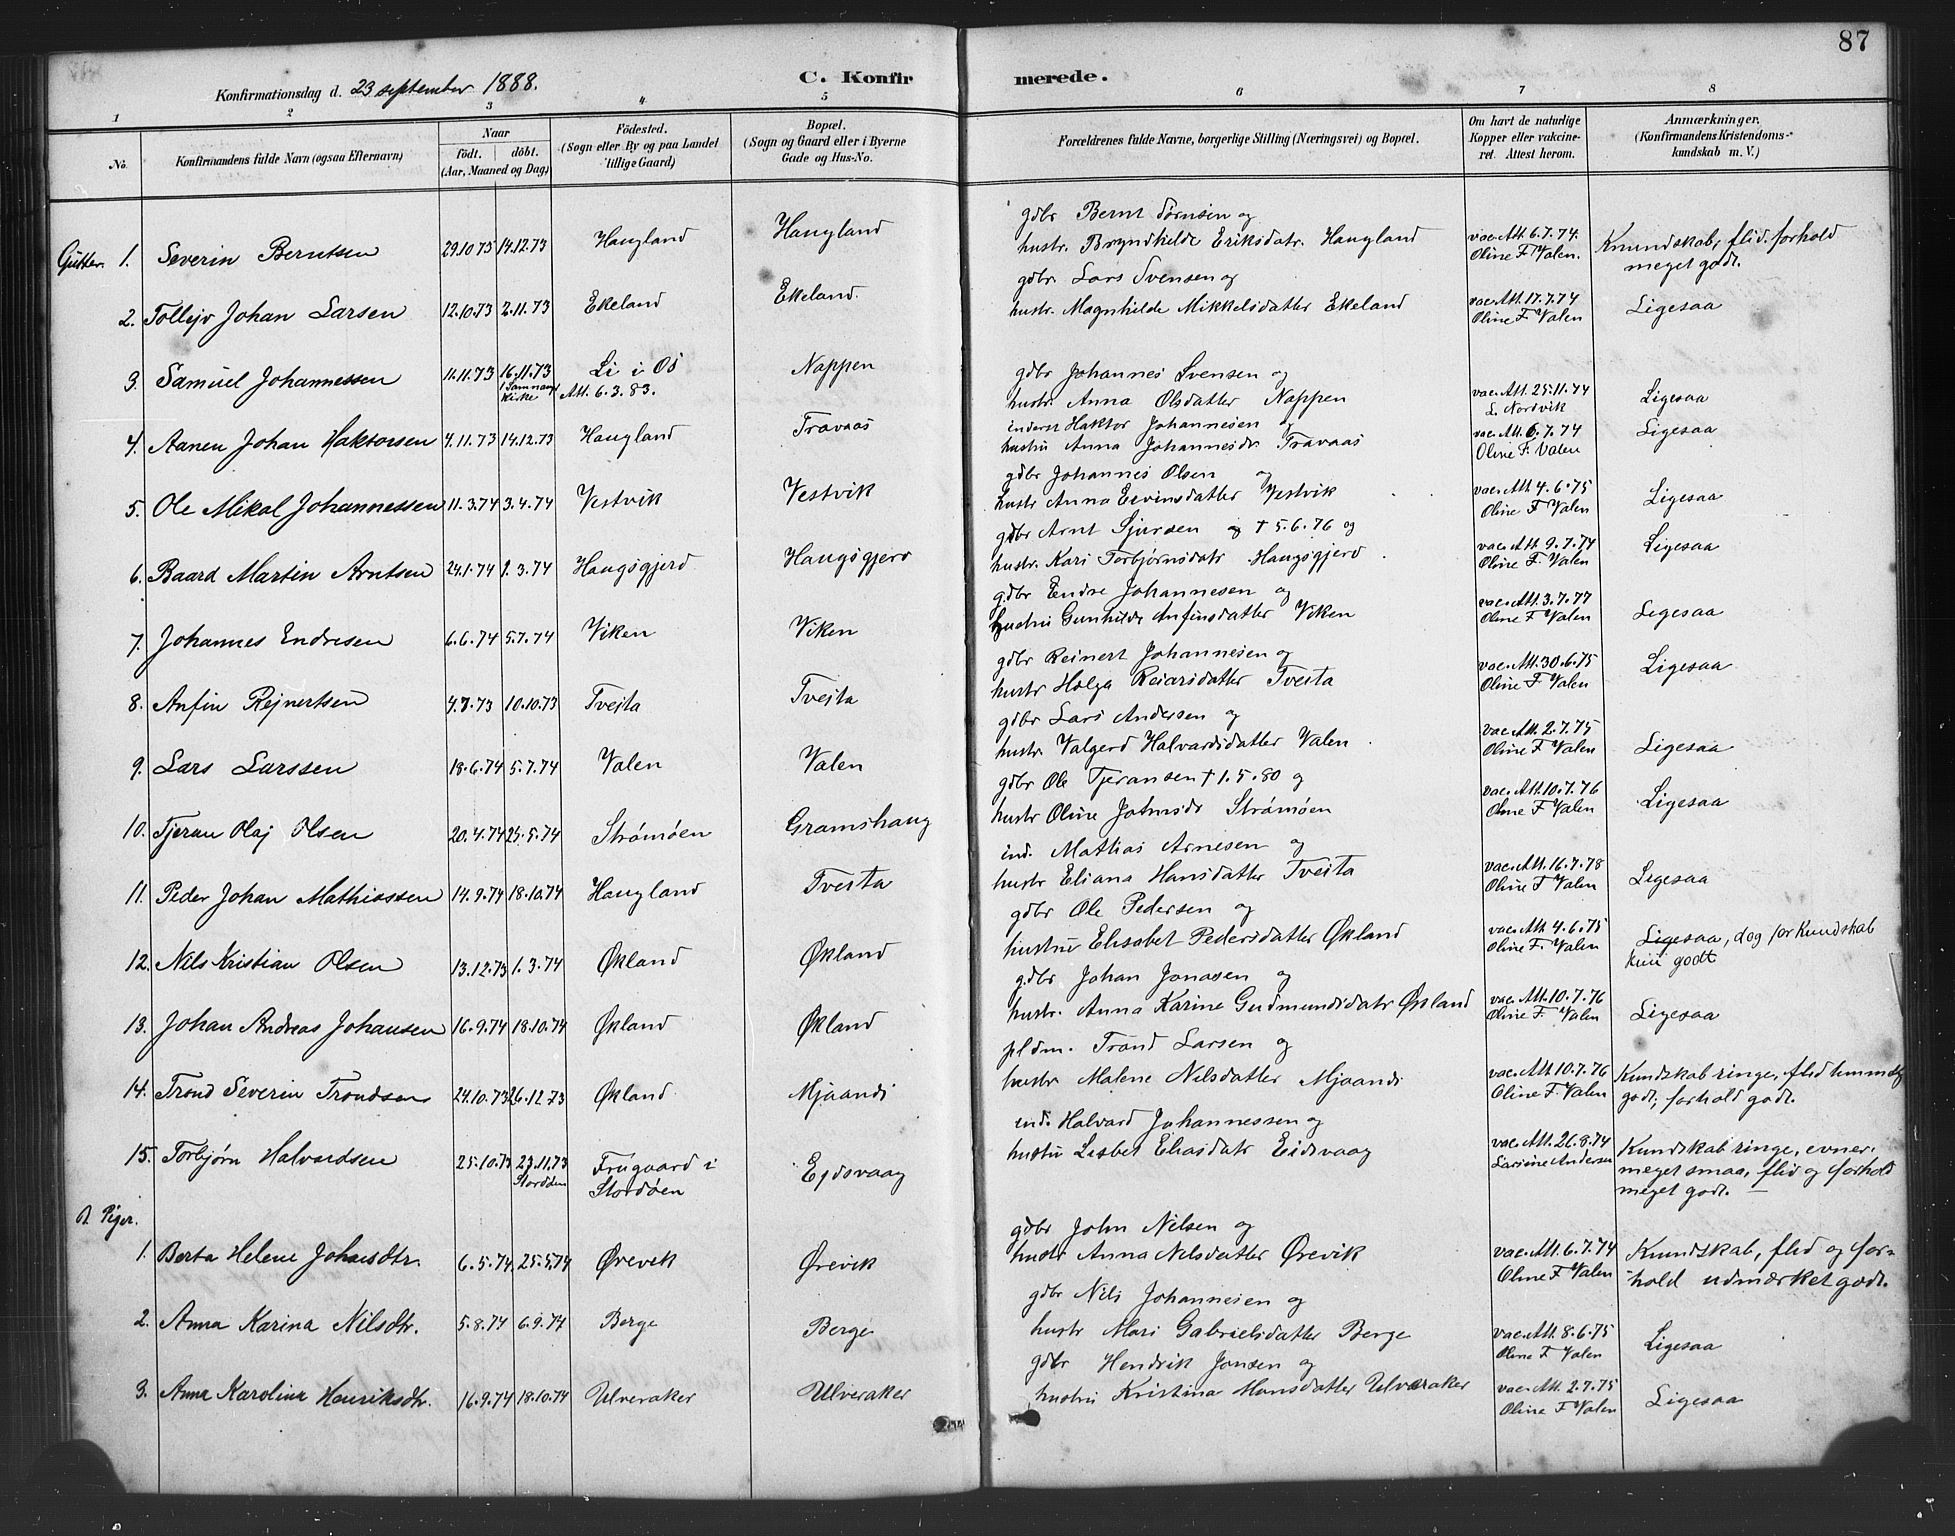 87
C. Konfirmerede.
Konfirmationsdag d. 23 september 1888.
1 2 3 4 5 6 7 8
No.
Konfirmandens fulde Navn (ogsaa Efternavn)
Naar
födt. döbt.
(Aar, Maaned og Dag)
Födested.
(Sogn eller By og paa Landet
tillige Gaard)
Bopæl.
(Sogn og Gaard eller i Byerne
Gade og Hus-No.
Forældrenes fulde Navne, borgerlige Stilling (Næringsvei) og Bopæl.
Om havt de naturlige
Kopper eller vakcine-
ret. Attest herom.
Anmærkninger.
(Konfirmandens Kristendoms-
kundskab m. V.)
Gutter. 1. Severin Berntsen 29.10.73 14.12.73 Haugland Haugland
gdbr Bernt Tørnsen og
hustr. Bryndhilde Eriksdatr. Haugland
vac. Att. 6.7.74.
Oline F. Valen.
Kundskab, flid, forhold
meget godt.
2. Tollejv Johan Larsen 12.10.73 2.11.73 Ekeland Ekeland.
gdbr. Lars Svensen og
hustr. Magnhilde Mikkelsdatter Ekeland
vac. Att. 17.7.74
Oline F. Valen
Ligesaa
3. Samuel Johannessen 11.11.73 16.11.73 Li i Os Nappen
i Samnang
Kirke
Att. 6.3.83.
gdbr Johannes Svensen og
hustr. Anna Olsdatter Nappen
vac. Att. 25.11.74
L. Nordvik
Ligesaa
4. Aanen Johan Haktorsen 4.11.73 14.12.73 Haugland Travaas
inderst Haktor Johannesen og
hustru Anna Johannesdr Travaas
vac. Att. 6.7.74
Oline F. Valen
Ligesaa
5. Ole Mikal Johannessen 11.3.74 3.4.74 Vestvik Vestvik
gdbr Johannes Olsen og
hustr Anna Eivinsdatter Vestvik
vac. Att. 4.6.75
Oline F. Valen
Ligesaa
6. Baard Martin Arntsen 24.1.74 1.3.74 Haugsgjerd Haugsgjerd
gdbr Arnt Sjursen og † 5.6.76 og
hustr. Kari Torbjørnsdatr Haugsgjerd
vac. Att. 9.7.74
Oline F. Valen
Ligesaa
7. Johannes Endresen 6.6.74 5.7.74 Viken Viken
gdbr Endre Johannesen og
hustru Gunhilde Anfinsdatter Viken
vac. Att. 3.7.77
Oline F. Valen
Ligesaa
8. Anfin Rejnertsen 4.7.73 10.10.73 Tveita Tveita
gdbr Reinert Johannesen og
hustr Helga Reiarsdatter Tveita
vac. Att. 30.6.75
Oline F. Valen
Ligesaa
9. Lars Larssen 18.6.74 5.7.74 Valen Valen
gdbr Lars Andersen og
hustr Valgerd Halvardsdatter Valen
vac. Att. 2.7.75
Oline F. Valen
Ligesaa
10. Tjeran Olaj Olsen 20.4.74 25.5.74 Strømøen Gramshaug
gdbr Ole Tjeransen † 1.5.80 og
hustr Oline Johnsdr Strømøen
vac. Att. 10.7.76
Oline F. Valen
Ligesaa
11. Peder Johan Mathiassen 14.9.74 18.10.74 Haugland Tveita
ind. Mathias Arnesen og
hustr Eliana Hansdatter Tveita
vac. Att. 16.7.78
Oline F. Valen
Ligesaa
12. Nils Kristian Olsen 13.12.73 1.3.74 Økland Økland
gdbr Ole Pedersen og
hustru Elisabet Pedersdatter Økland
vac. Att. 4.6.75
Oline F. Valen
Ligesaa, dog for Kundskab
kun godt
13. Johan Andreas Johansen 16.9.74 18.10.74 Økland Økland
gdbr Johan Jonasen og
hustr. Anna Karine Gudmundsdatr Økland
vac. Att. 10.7.76
Oline F. Valen
Ligesaa
14. Trond Severin Trondsen 24.10.73 26.12.73 Økland Mjaanæs
pldm. Trond Larsen og
hustr Malene Nilsdatter Mjaanæs
vac. Att. 10.7.76
Oline F. Valen
Kundskab ringe, flid temmelig
godt, forhold godt.
15. Torbjørn Halvardsen 25.10.73 23.11.73 Frugaard i Ejdsvaag
Stordøen Stordøen
ind. Halvard Johannessen og
hustru Lisbet Eliasdatr Eidsvaag
vac. Att. 26.8.74
Larsine Andersen
Kundskab ringe, evner
meget smaa, flid og forhold
meget godt.
Piger.
1. Berta Helene Johnsdtr. 6.5.74 25.5.74 Ørevik Ørevik
gdbr John Nilsen og
hustr Anna Nilsdatter Ørevik
vac. Att. 6.7.74
Oline F. Valen
Kundskab, flid og for-
hold udmærket godt.
2. Anna Karina Nilsdtr. 5.8.74 6.9.74 Berge Berge
gdbr Nils Johannesen og
hustr Mari Gabrielsdatter Berge
vac. Att. 8.6.75
Oline F. Valen
Ligesaa
3. Anna Karolina Henriksdtr. 16.9.74 18.10.74 Ulveraker Ulveraker
gdbr Hendrik Jonsen og
hustru Kristina Hansdatter Ulveraker
vac. Att. 2.7.75
Oline F. Valen
Ligesaa